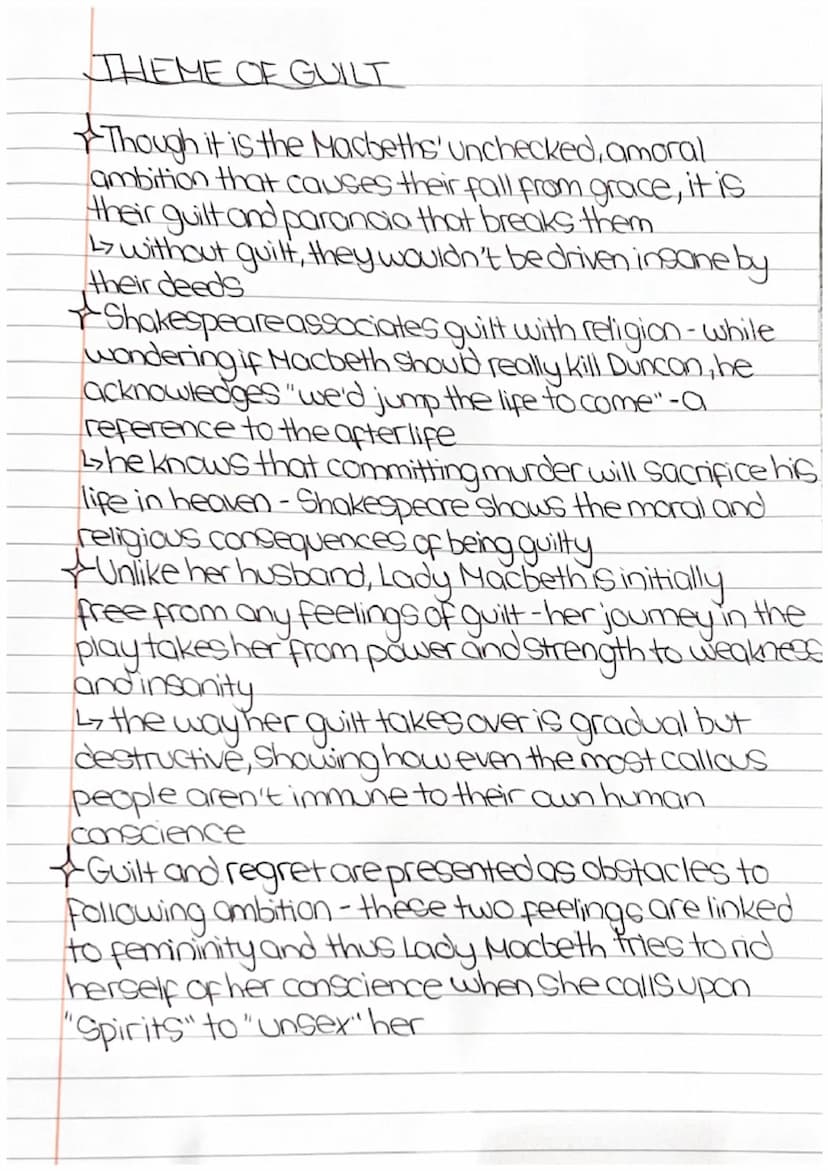 THEME OF GUILT
✧Though it is the Macbeths' unchecked, amoral
ambition that causes their fall from grace, it is
their guilt and paranoia that breaks them
↳ without guilt, they wouldn't be driven insane by
their deeds
✧Shakespeare associates guilt with religion - while
wondering if Macbeth should really kill Duncan, he
acknowledges "we'd jump the life to come" - a
reference to the afterlife
↳ he knows that committing murder will sacrifice his
life in heaven - Shakespeare shows the moral and
religious consequences of being guilty
✧Unlike her husband, Lady Macbeth is initially
free from any feelings of guilt - her journey in the
play takes her from power and strength to weakness
and insanity
↳ the way her guilt takes over is gradual but
destructive, showing how even the most callous
people aren't immune to their own human
conscience
✧Guilt and regret are presented as obstacles to
following ambition - these two feelings are linked
to femininity and thus Lady Macbeth tries to rid
herself of her conscience when she calls upon
"spirits" to "unsex" her